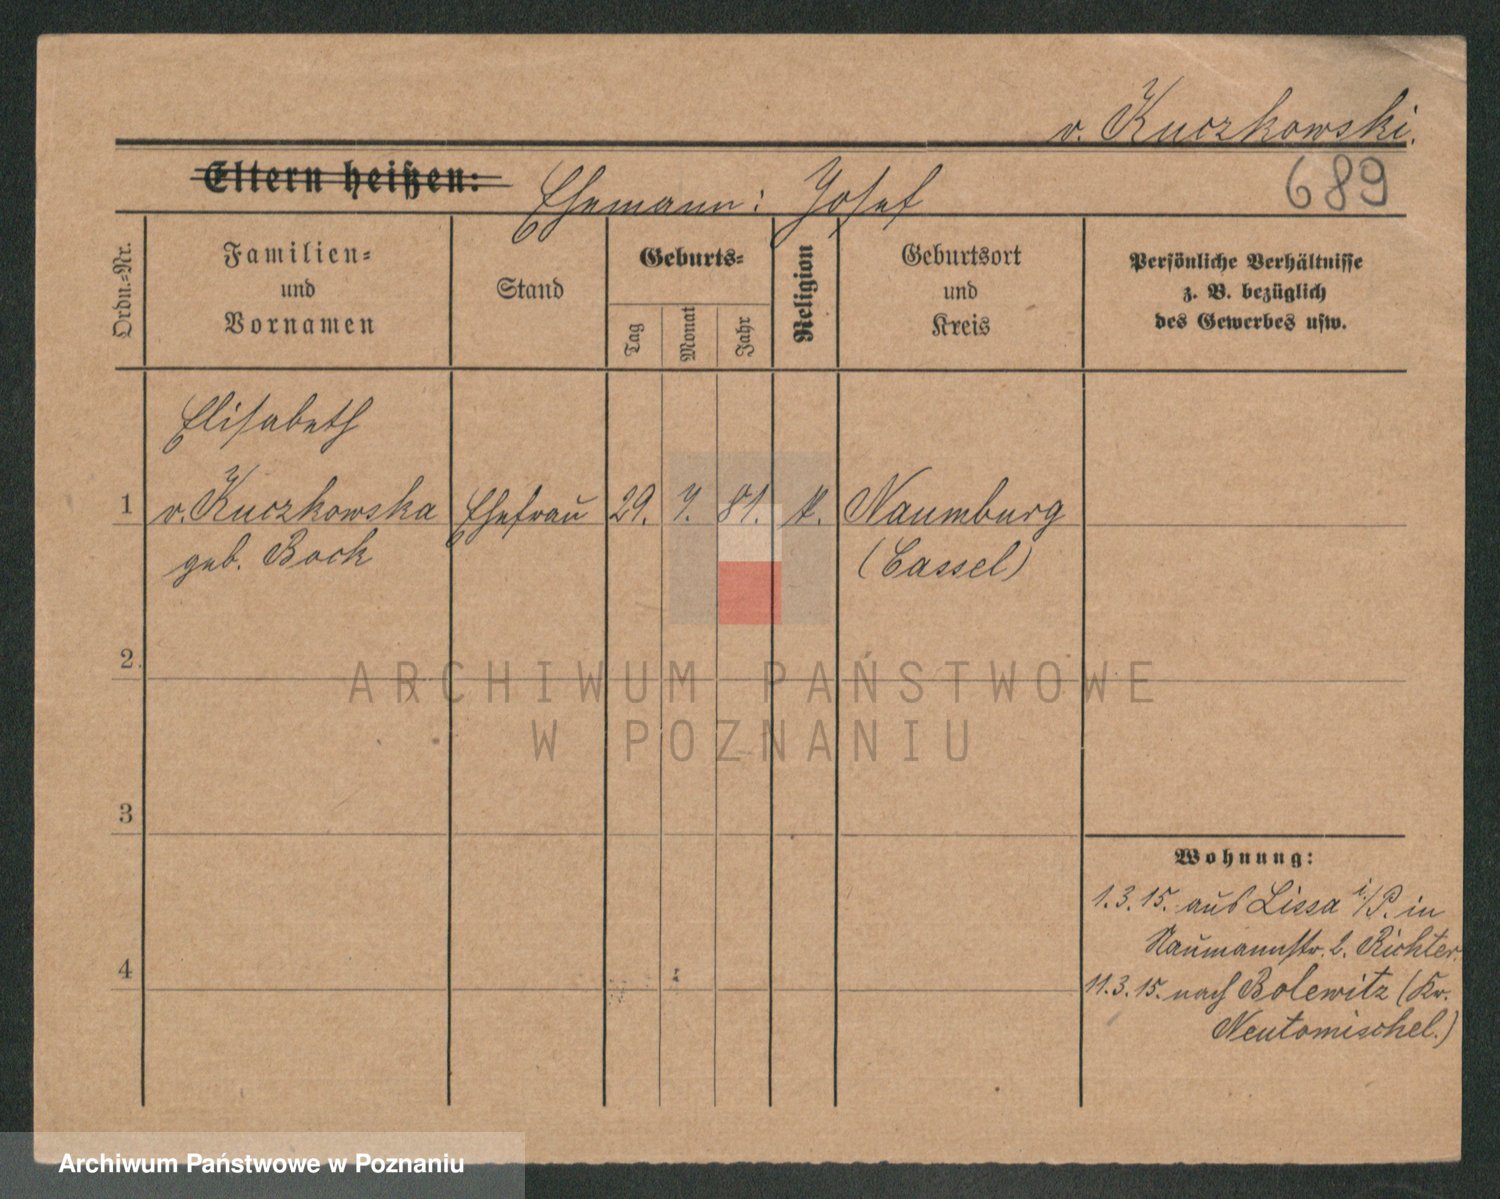 v. Kuczkowski.
Eltern heißen: Ehemann: Josef
689
Ordn.-Nr.
Familien-
und
Vornamen
Stand
Geburts-
Tag
Monat
Jahr
Religion
Geburtsort
und
Kreis
Persönliche Verhältnisse
z. B. bezüglich
des Gewerbes usw.
Elisabeth
1 v. Kuczkowska Ehefrau 29. 7. 81. k. Naumburg
geb. Bock (Cassel)
2.
ARCHIWUM PAŃSTWOWE
W POZNANIU
3
Wohnung:
1.3.15. aus Lissa i/P. in
Naumannstr. 2. Richter.
4
11.3.15. nach Bolewitz (Kr.
Neutomischel.)
Archiwum Państwowe w Poznaniu